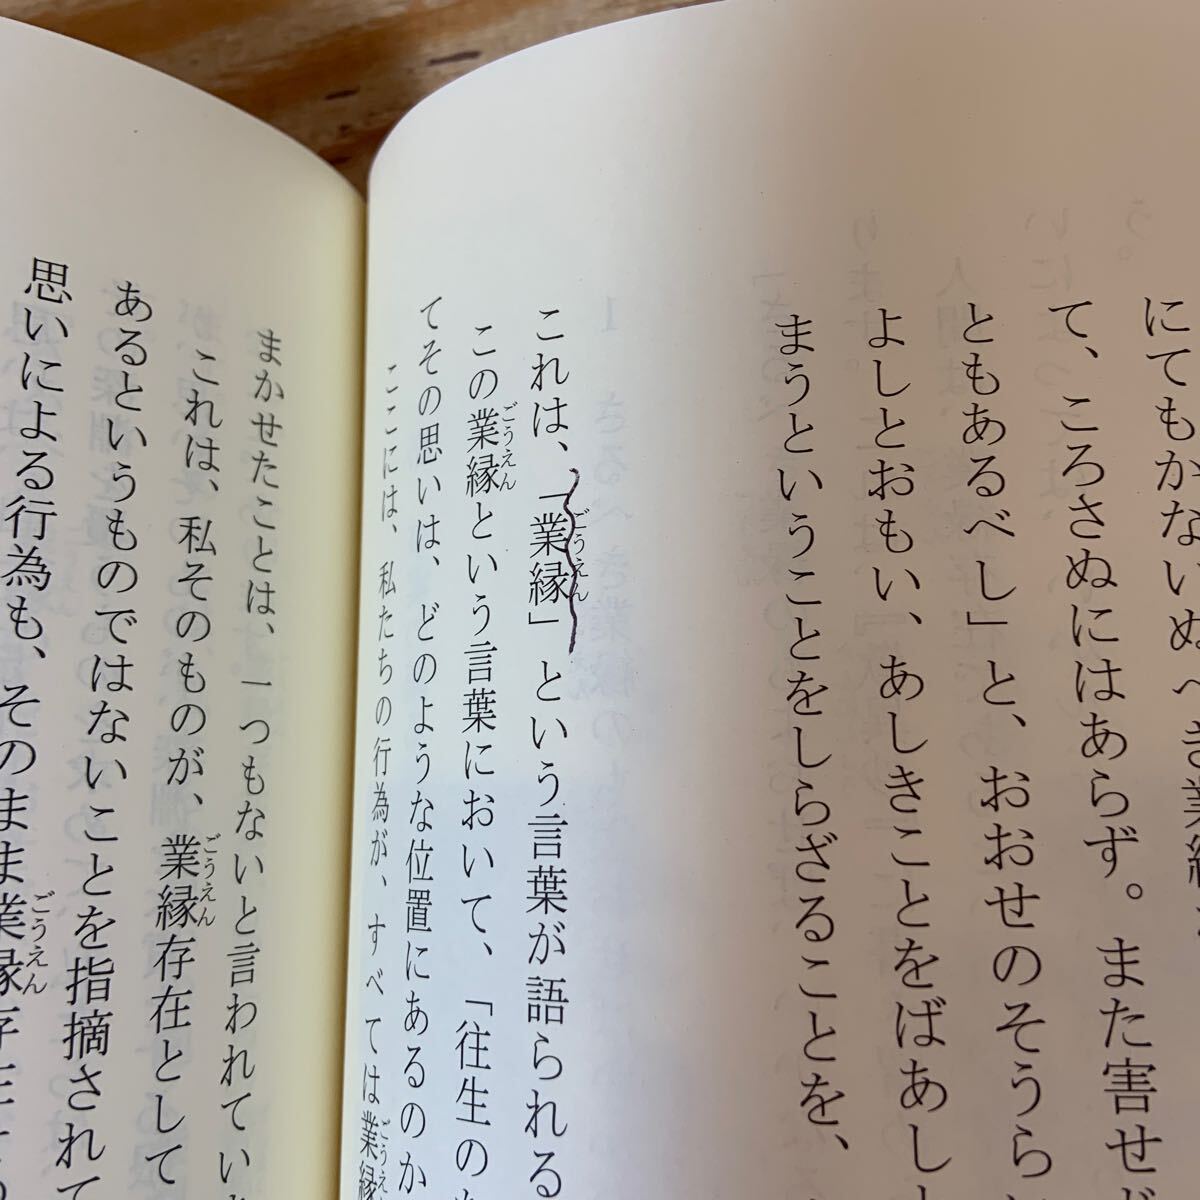 にてもかないぬべき業縁
て、ころさぬにはあらず。また害せ
ともあるべし」と、おおせのそうら
よしとおもい、あしきことをばあし
まうということをしらざることを、
これは、「業縁」という言葉が語られる
ごうえん
この業縁という言葉において、「往生の
ごうえん
てその思いは、どのような位置にあるのか
ここには、私たちの行為が、すべては業縁
ごうえ
まかせたことは、一つもないと言われてい
これは、私そのものが、業縁存在として
ごうえん
あるというものではないことを指摘されて
思いによる行為も、そのまま業縁存在
ごうえん